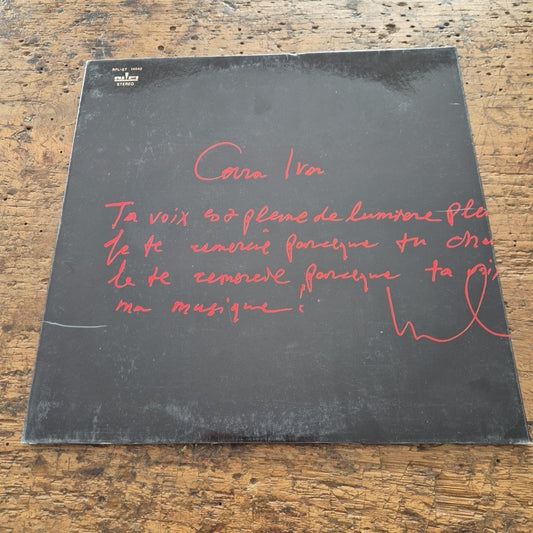 RIFI
STEREO
Cara Iva
Ta voix est pleine de lumiere
Je te remercie parceque tu
Je te remercie parceque ta
ma musique!